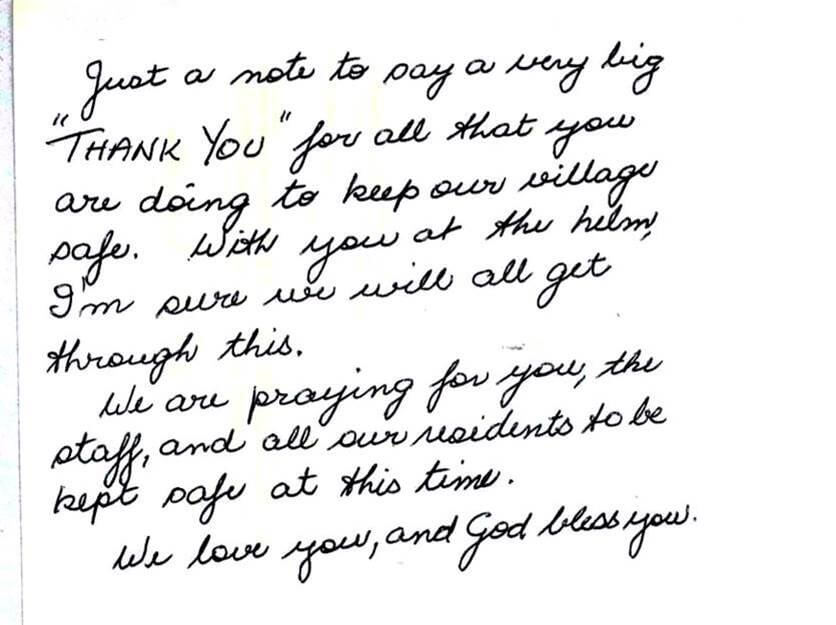 Just a note to say a very big
"THANK YOU" for all that you
are doing to keep our village
safe. With you at the helm,
I'm sure we will all get
through this.
We are praying for you, the
staff, and all our residents to be
kept safe at this time.
We love you, and God bless you.